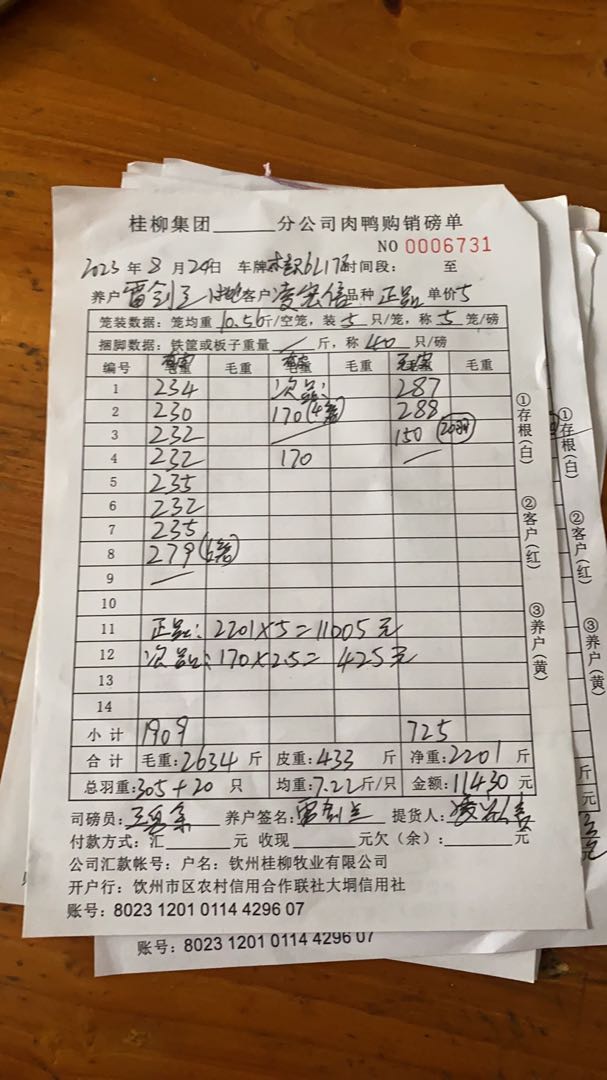 桂柳集团______分公司肉鸭购销磅单
NO 0006731
2023 年 8 月 24日 车牌 6L17 时间段: 至
养户 雷剑 客户 凌 信 品种 正品 单价 5
笼装数据: 笼均重 10.56 斤/空笼, 装 5 只/笼, 称 5 笼/磅
捆脚数据: 铁筐或板子重量 / 斤, 称 40 只/磅
编号 毛重 毛重 毛重
1 234 次品: 287
2 230 170 (4笼) 288
3 232 / 150 (20只)
4 232 170 /
5 235
6 232
7 235
8 279 (6笼)
9 /
10
11 正品: 2201×5=11005元
12 次品: 170×2.5= 425元
13
14
小计 1909 725
合计 毛重: 2634 斤 皮重: 433 斤 净重: 2201 斤
总羽重: 305+20 只 均重: 7.22 斤/只 金额: 11430 元
司磅员: 养户签名: 雷剑 提货人: 凌 信
付款方式: 汇______元 收现______元欠(余):______元
公司汇款帐号: 户名: 钦州桂柳牧业有限公司
开户行: 钦州市区农村信用合作联社大垌信用社
账号: 8023 1201 0114 4296 07
①存根(白) ②客户(红) ③养户(黄)
①存根(白) ②客户(红) ③养户(黄)
斤
元
元
账号: 8023 1201 0114 4296 07